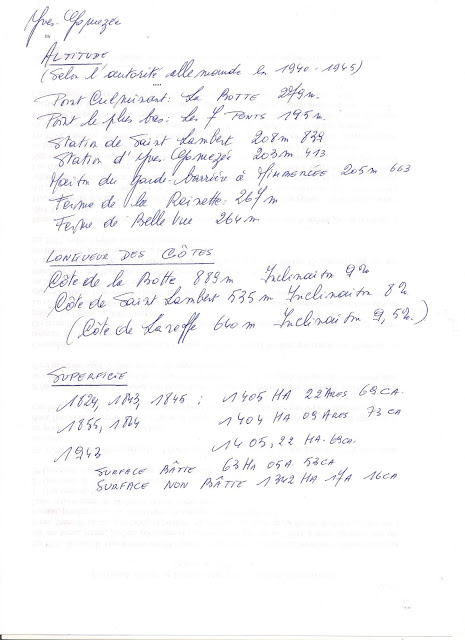 Yves-Gomezée
ALTITUDE
(Selon l'autorité allemande en 1940-1945)
Point Culminant: La BOTTE 279m.
Point le plus bas: Les 7 PONTS 195m.
Station de Saint Lambert 208m 839
Station d'Yves-Gomezée 203m 413
Maison du Garde-barrière à HEMRENÉE 205m 663
Ferme de la Rainette: 267m
Ferme de Belle Vue 264m
LONGUEUR DES CÔTES
Côte de la Botte 889m Inclinaison 9%
Côte de Saint Lambert 535m Inclinaison 8%
(Côte de Laroffe 640m Inclinaison 9,5%.)
SUPERFICIE
1824, 1843, 1845 ; 1405 HA 22 Ares 69 CA.
1855, 1864 1404 HA 09 Ares 73 CA
1943 1405,22 HA. 69 ca.
SURFACE BÂTIE 63 Ha 05 A. 53 CA
SURFACE NON BÂTIE 1342 HA 17A 16 CA